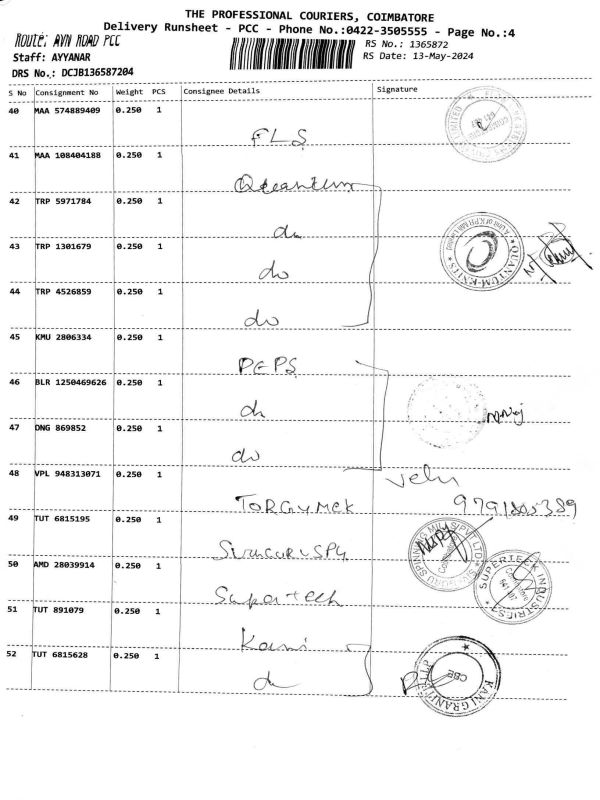 THE PROFESSIONAL COURIERS, COIMBATORE
Delivery Runsheet - PCC - Phone No.:0422-3505555 - Page No.:4
ROUTE: AVN ROAD PCC
RS No.: 1365872
Staff: AYYANAR
RS Date: 13-May-2024
DRS No.: DCJB136587204
S No Consignment No Weight PCS Consignee Details Signature
40 MAA 574889409 0.250 1
FLS
41 MAA 108404188 0.250 1
Quantum
42 TRP 5971784 0.250 1
do
43 TRP 1301679 0.250 1
do
44 TRP 4526859 0.250 1
do
QUANTUM-KNITS
45 KMU 2806334 0.250 1
PEPS
46 BLR 1250469626 0.250 1
do
47 DNG 869852 0.250 1
do
48 VPL 948313071 0.250 1
velu
TORGYMEK
49 TUT 6815195 0.250 1
50 AMD 28039914 0.250 1
Supertech
SUPERTECK INDUSTRIES
51 TUT 891079 0.250 1
Kani
52 TUT 6815628 0.250 1
do
KANI GRANITE LLP
CBE